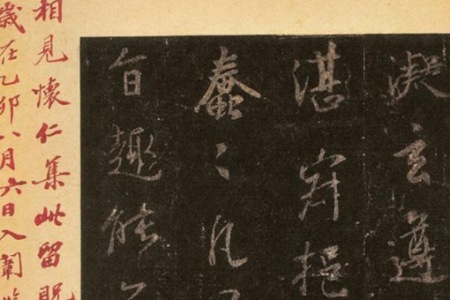 凝玄遵
湛寂挹
蠢々凡
旨趣能
相見懷仁集此留
歲在乙卯八月六日入闈